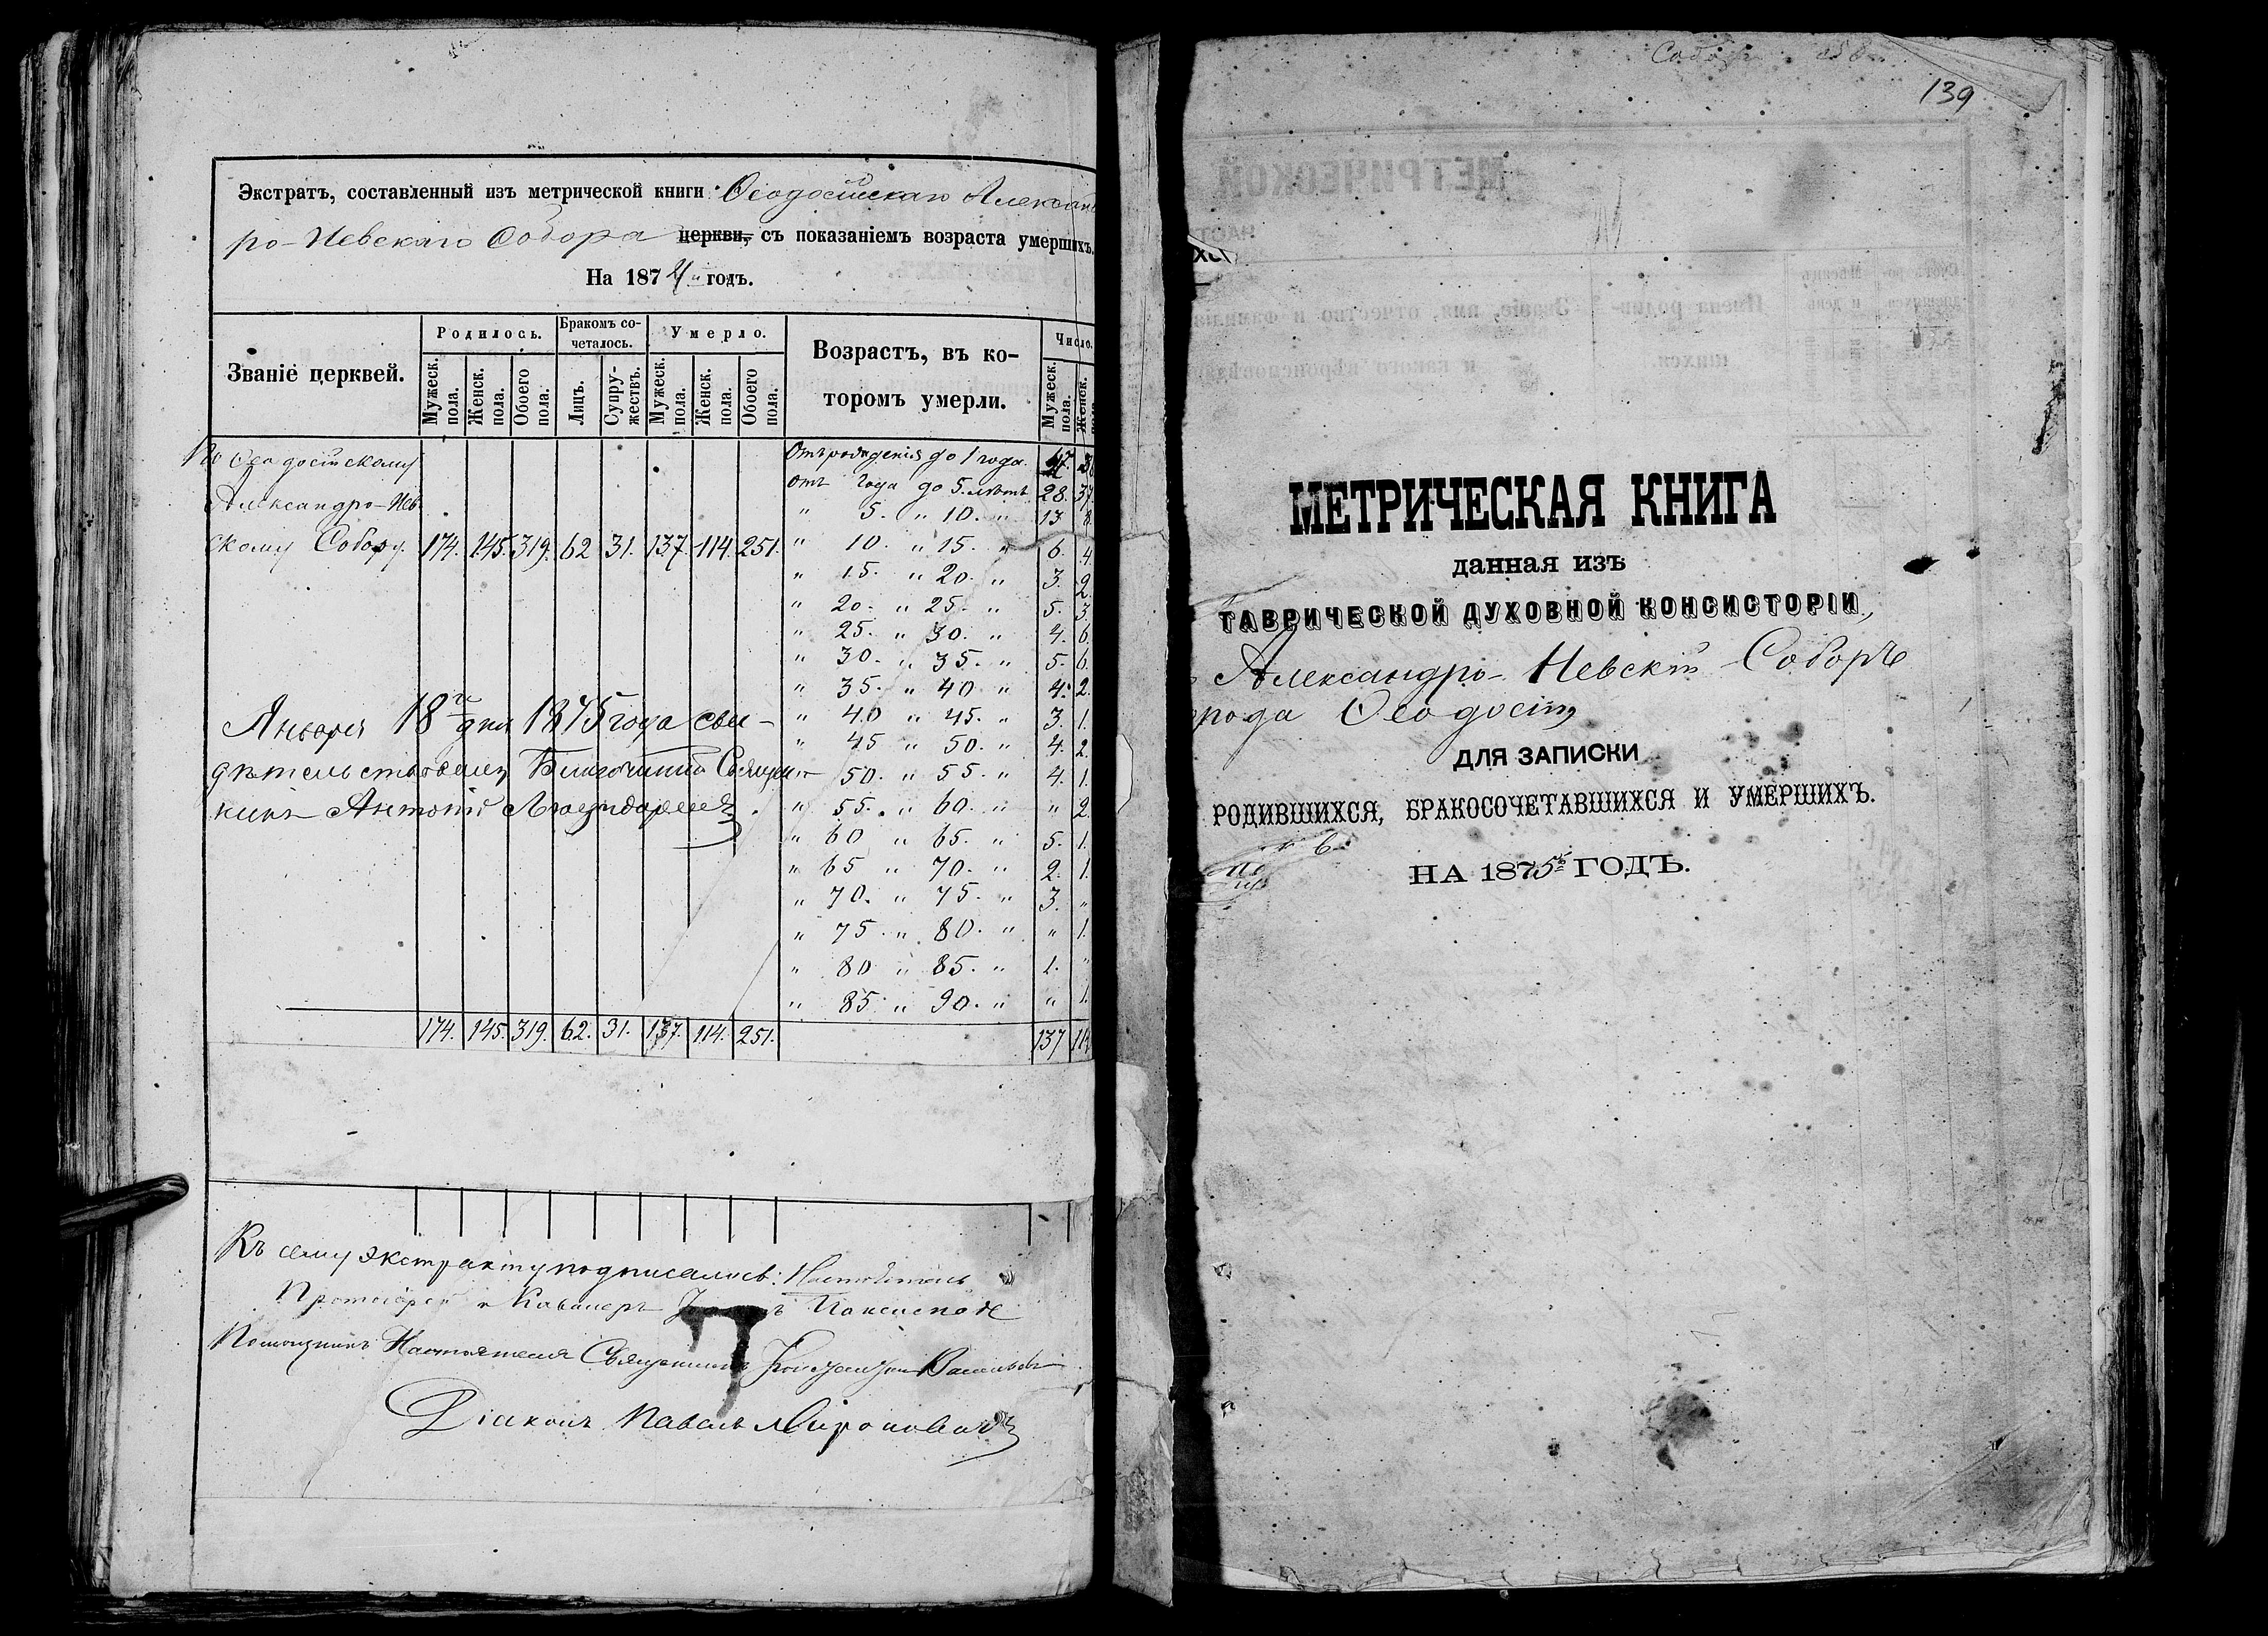 Экстратъ, составленный изъ метрической книги Ѳеодосійскаго Александ
ро-Невскаго Собора церкви, съ показаніемъ возраста умершихъ.
На 1874 годъ.
Званіе церквей.
Родилось.
Бракомъ со-
четалось.
Умерло.
Возрастъ, въ ко-
торомъ умерли.
Число.
Мужеск. пола.
Женск. пола.
Обоего пола.
Лицъ.
Супру-
жествъ.
Мужеск. пола.
Женск. пола.
Обоего пола.
Мужеск. пола.
Женск.
По Ѳеодосійскому
Александро-Нев-
скому Собору. 174. 145. 319. 62 31. 137. 114. 251.
Отъ рожденія до 1 года. 47.
отъ года до 5. лѣтъ 28. 37.
" 5. " 10. " 13 8.
" 10. " 15. " 6. 4.
" 15. " 20. " 3. 2.
" 20. " 25. " 5. 3.
" 25. " 30. " 4. 6.
" 30. " 35. " 5. 6.
" 35. " 40 " 4. 2.
" 40 " 45. " 3. 1.
" 45 " 50. " 4. 2.
" 50. " 55. " 4. 1.
" 55. " 60. " " 2.
" 60 " 65. " 5. 1.
" 65 " 70. " 2. 1.
" 70. " 75. " 3. "
" 75. " 80. " " 1.
" 80 " 85. " 1. "
" 85 " 90. " " 1.
Января 18го дня 1875 года сви-
дѣтельствовалъ Благочинный Священ-
никъ Антоній
174. 145. 319. 62. 31. 137. 114. 251. 137 114
Къ сему экстракту подписались: Настоятель
Протоіерей и Кавалеръ
Помощникъ Настоятеля Священникъ
Діаконъ Павелъ Мироновичъ
139
МЕТРИЧЕСКАЯ КНИГА
данная изъ
ТАВРИЧЕСКОЙ ДУХОВНОЙ КОНСИСТОРІИ,
Александро-Невскій Соборъ
орода Ѳеодосіи
ДЛЯ ЗАПИСКИ
РОДИВШИХСЯ, БРАКОСОЧЕТАВШИХСЯ И УМЕРШИХЪ.
НА 1875й ГОДЪ.